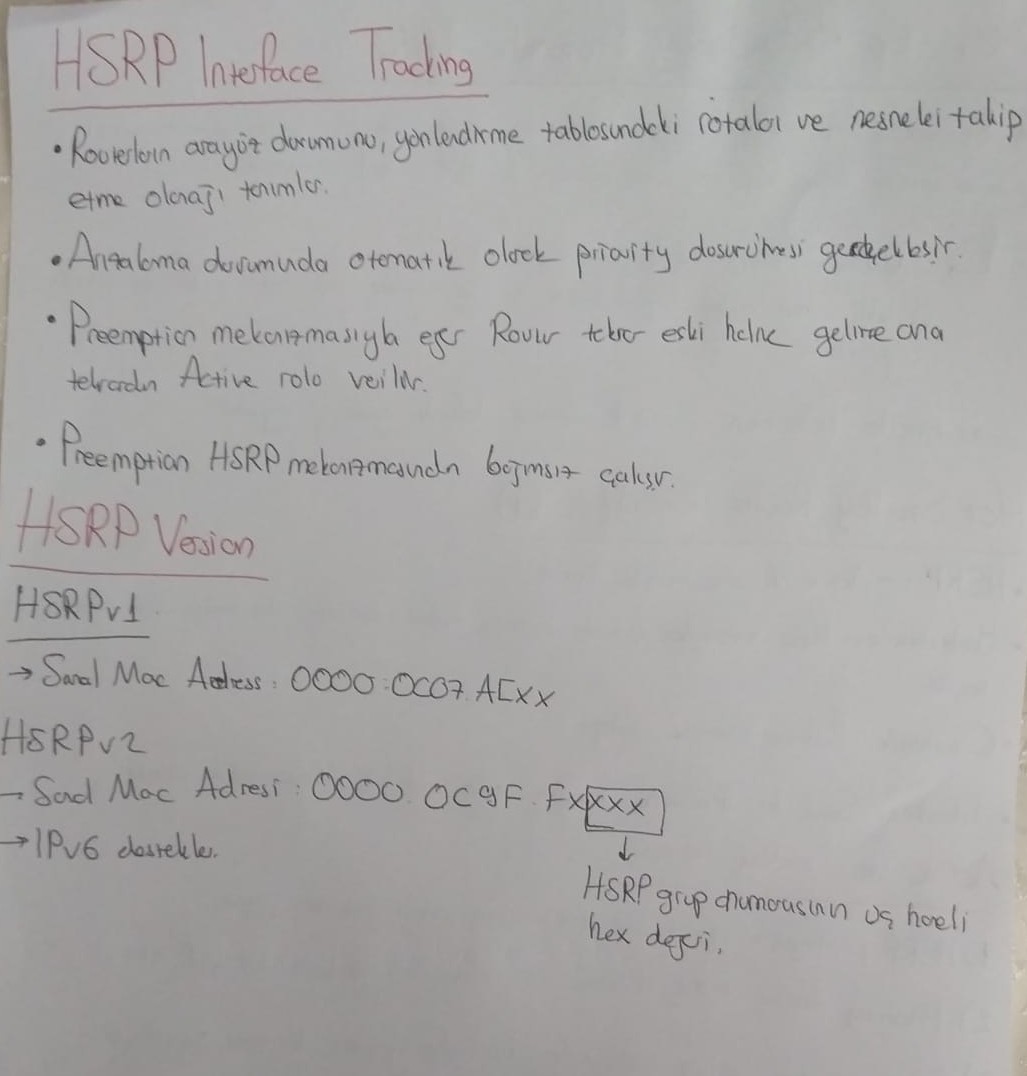 HSRP Interface Tracking
• Routerların arayüz durumunu, yönlendirme tablosundaki rotaları ve nesneleri takip
etme olanağı tanımlar.
• Arızalanma durumunda otomatik olarak priority düşürülmesi gerçekleşir.
• Preemption mekanizmasıyla eğer Router tekrar eski haline gelirse ona
tekrardan Active rolü verilir.
• Preemption HSRP mekanizmasından bağımsız çalışır.
HSRP Version
HSRPv1
→ Sanal Mac Address : 0000.0C07.ACXX
HSRPv2
→ Sanal Mac Adresi : 0000.0C9F.FXXXX
→ IPv6 destekler.
↓
HSRP grup numarasının üç haneli
hex değeri.